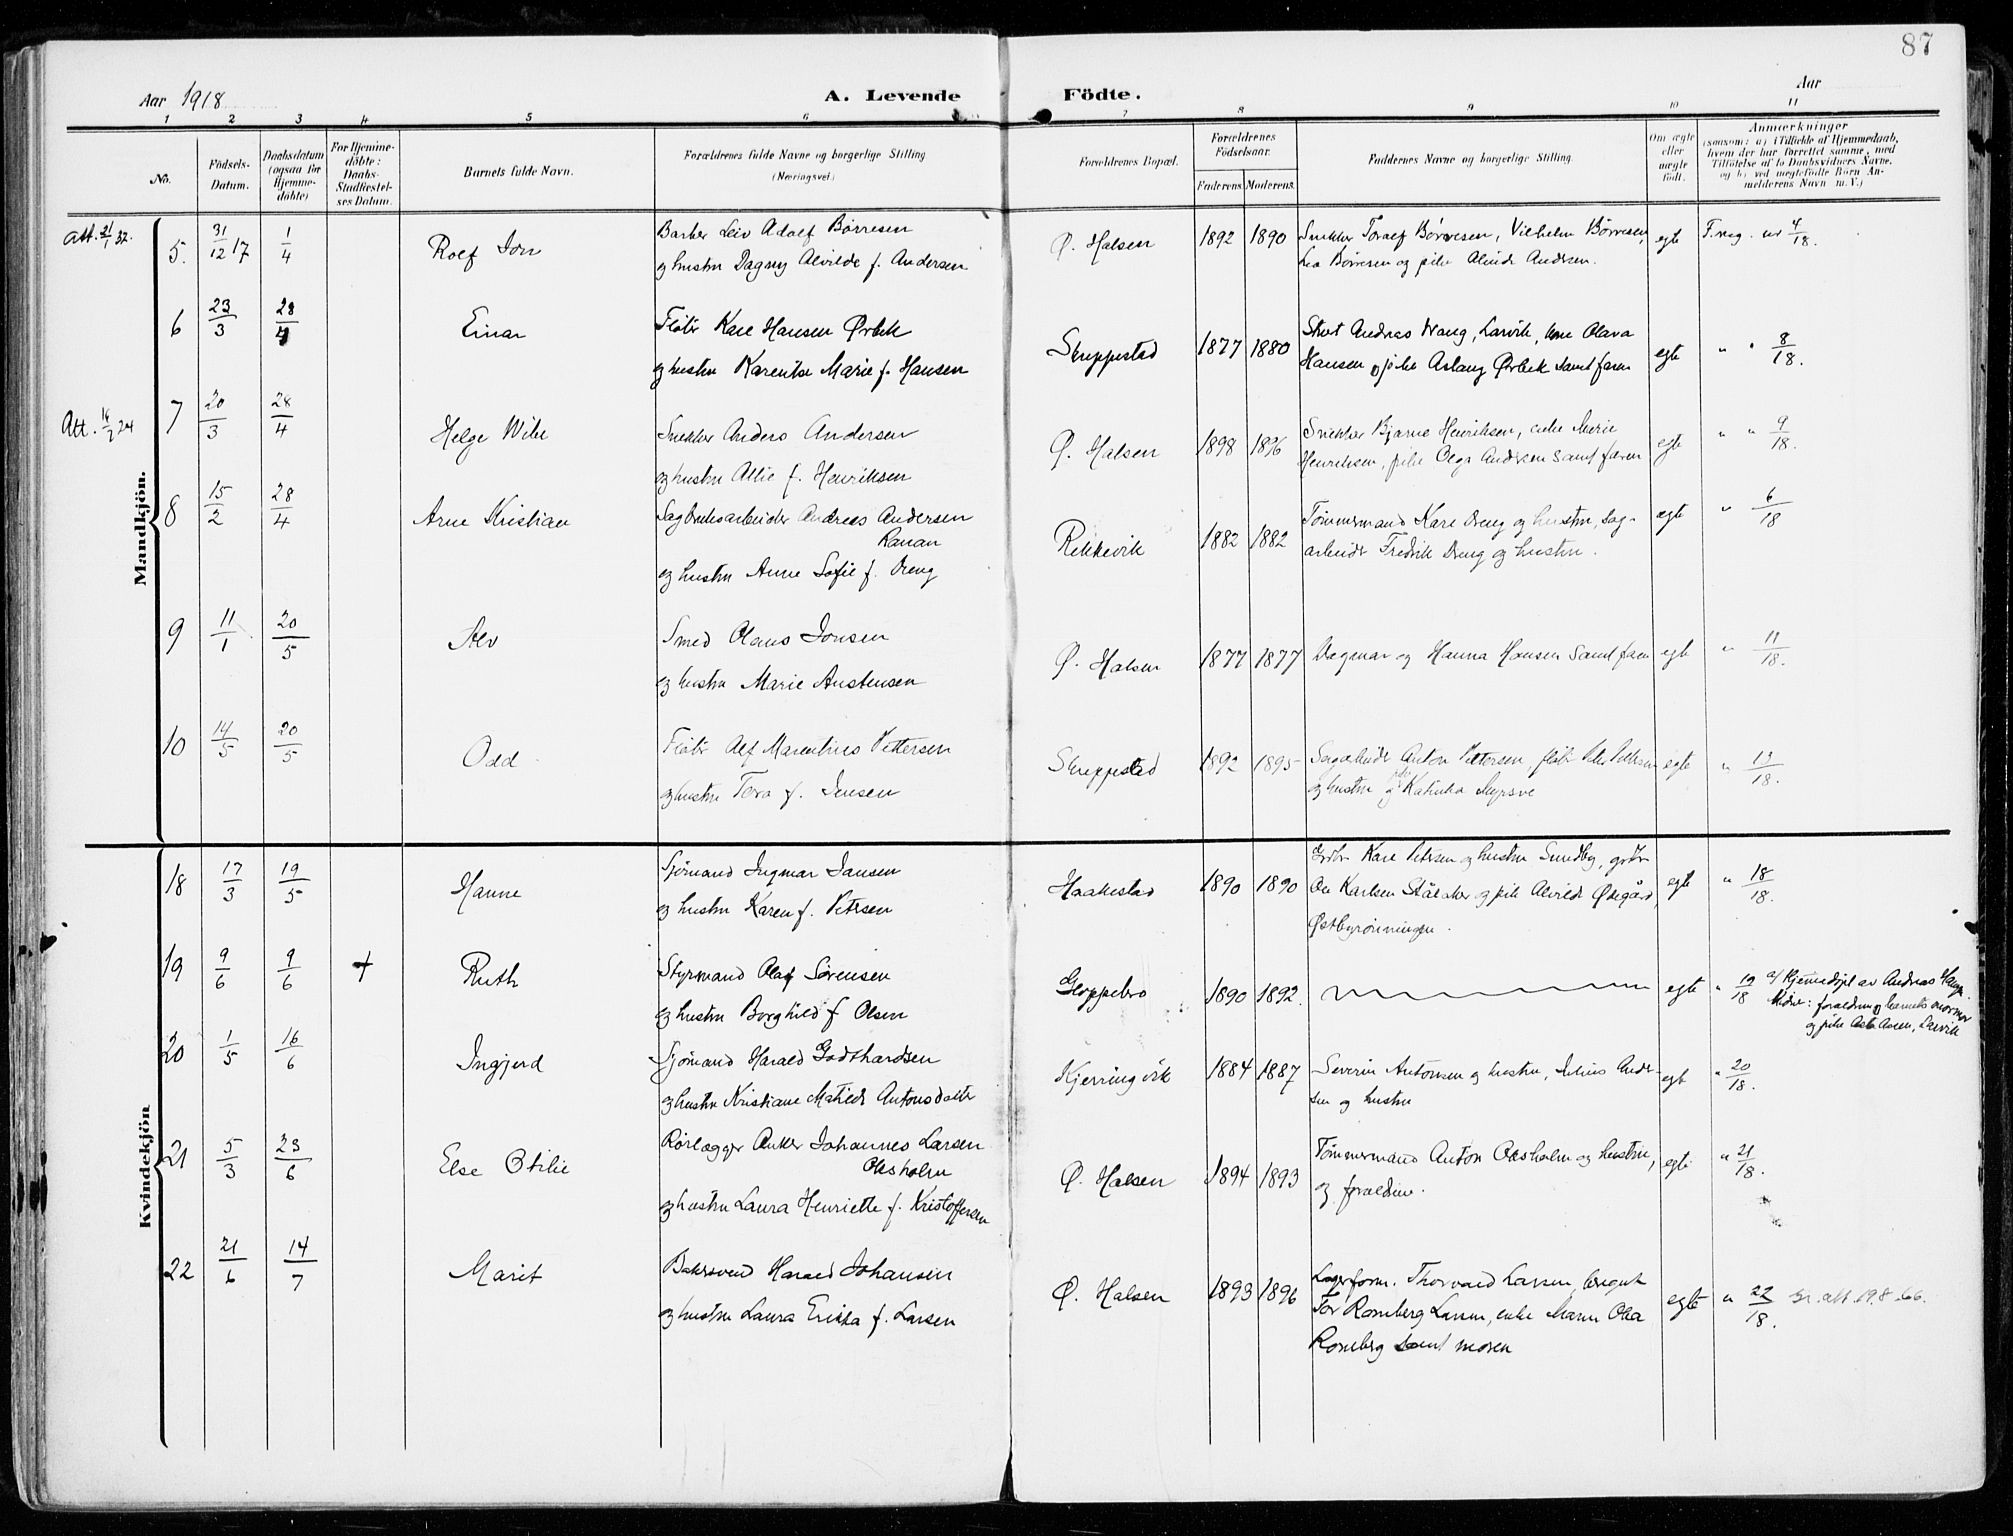 87
Aar 1918
A. Levende
Födte.
Aar
1 2 3 4 5 6 7 8 9 10 11
No.
Födsels-
Datum.
Daabsdatum
(ogsaa for
Hjemme-
döbte)
For Hjemme-
döbte:
Daabs-
Stadfæstel-
ses Datum.
Barnets fulde Navn.
Forældrenes fulde Navne og borgerlige Stilling
(Næringsvei)
Forældrenes Bopæl.
Forældrenes
Födselsaar.
Faderens. Moderens.
Faddernes Navne og borgerlige Stilling.
Om ægte
eller
uægte
födt.
Anmærkninger
(saasom: a) i Tilfælde af Hjemmedaab,
hvem der har forrettet samme, med
Tilföielse af to Daabsvidners Navne,
og b) ved uægtefödte Börn An-
melderens Navn m. V.)
Mandkjön.
Att. 21/1 32.
5. 31/12 17 1/4 Rolf Jon
Barber Leiv Adolf Børresen
og hustru Dagny Alvilde f. Andersen
Ø. Halsen 1892 1890
Snekker Toralf Børresen, Vilhelm Børresen,
Lea Børresen og pike Alvide Andersen.
egte
F. reg. nr 4/18.
6 23/3 28/4 Einar
Fløter Karl Hansen Ørbek
og hustru Karentse Marie f. Hansen
Skuppestad 1877 1880
Andreas Wang, Larvik, kone Olava
Hansen og pike Aslaug Ørbek samt faren
egte
" " 8/18.
Att. 24
7 20/3 28/4 Helge Wilh
Snekker Anders Andersen
og hustru Allie f. Henriksen
Ø. Halsen 1898 1896
Snekker Bjarne Henriksen, enke Merie
Henriksen, pike Olga Andersen samt faren
egte
" " 9/18.
8 15/2 28/4 Arne Kristian
Sagbruksarbeider Andreas Andersen
Ranan
og hustru Anne Sofie f. Dreng
Rekkevik 1882 1882
Tømmermand Karl Dreng og hustru, sag-
arbeider Fredrik Dreng og hustru.
egte
" 6/18
9 11/1 20/5 Alv
Smed Olaus Jonsen
og hustru Marie Austensen
Ø. Halsen 1877 1877
Dagmar og Hanna Hansen samt faren
egte
" 11/18.
10 14/5 20/5 Odd
Fløter Alf Marentius Pettersen
og hustru Tora f. Jensen
Skuppestad 1892 1895
Sagarbeider Anton Pettersen, fløter
og hustru og Katinka Myrsve
egte
" 13/18.
Kvindekjön
18 17/3 19/5 Hanne
Sjømand Ingmar Jansen
og hustru Karen f. Petersen
Haakestad 1890 1890
Karl Petersen og hustru Sundby,
Ole Karlsen Stålaker og pike Alvilde Ødegård,
Østbyrønningen.
egte
" 18/18.
19 9/6 9/6 + Ruth
Styrmand Olaf Sørensen
og hustru Borghild f Olsen
Gloppebro 1890 1892.
egte
" 19/18 a/ Hjemmedøpt av Andreas
Vidner: forældrene og barnets mormor
og pike Asta Olsen, Larvik
20 1/5 16/6 Ingjerd
Sjømand Harald Godthardsen
og hustru Kristiane Matilde Antonsdatter
Kjerringvik 1884 1887
Severin Antonsen og hustru, Julius Ander-
sen og hustru
egte
" 20/18.
21 5/3 23/6 Else Otilie
Rørlægger Anker Johannes Larsen
Olesholm
og hustru Laura Henriette f. Kristoffersen
Ø. Halsen 1894 1893
Tømmermand Anton Olesholm og hustru,
og forældrene.
egte
" 21/18.
22 21/6 14/7 Marit
Bakersvend Harald Johansen
og hustru Laura Erikka f. Larsen
Ø. Halsen 1893 1896
Lagerform. Thorvald Larsen,
Tor Romberg Larsen, enke Maren Olea
Romberg samt moren
egte
" 22/18. att. 19.8.66.